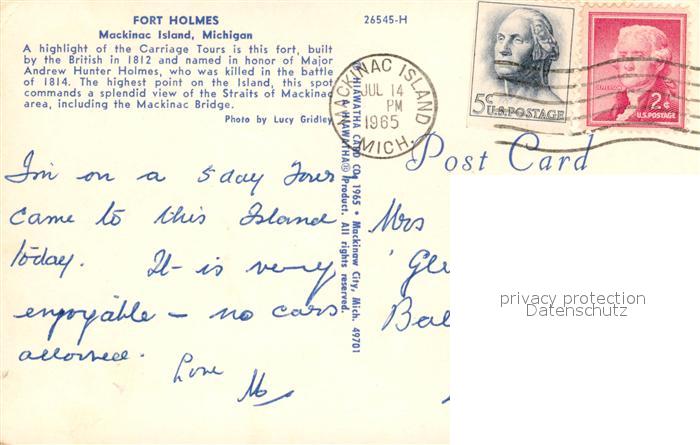 FORT HOLMES
Mackinac Island, Michigan
A highlight of the Carriage Tours is this fort, built
by the British in 1812 and named in honor of Major
Andrew Hunter Holmes, who was killed in the battle
of 1814. The highest point on the Island, this spot
commands a splendid view of the Straits of Mackinac
area, including the Mackinac Bridge.
Photo by Lucy Gridley
26545-H
MACKINAC ISLAND
JUL 14
PM
1965
MICH.
5¢
U.S. POSTAGE
JEFFERSON
2¢
U.S. POSTAGE
Post Card
HIAWATHA CARD CO., 1965 • Mackinaw City, Mich. 49701
A HIAWATHA® Product. All rights reserved.
I'm on a 5 day Tour
came to this Island
today. It is very
enjoyable – no cars
allowed.
Love
Mrs
Gle
Bal
privacy protection
Datenschutz